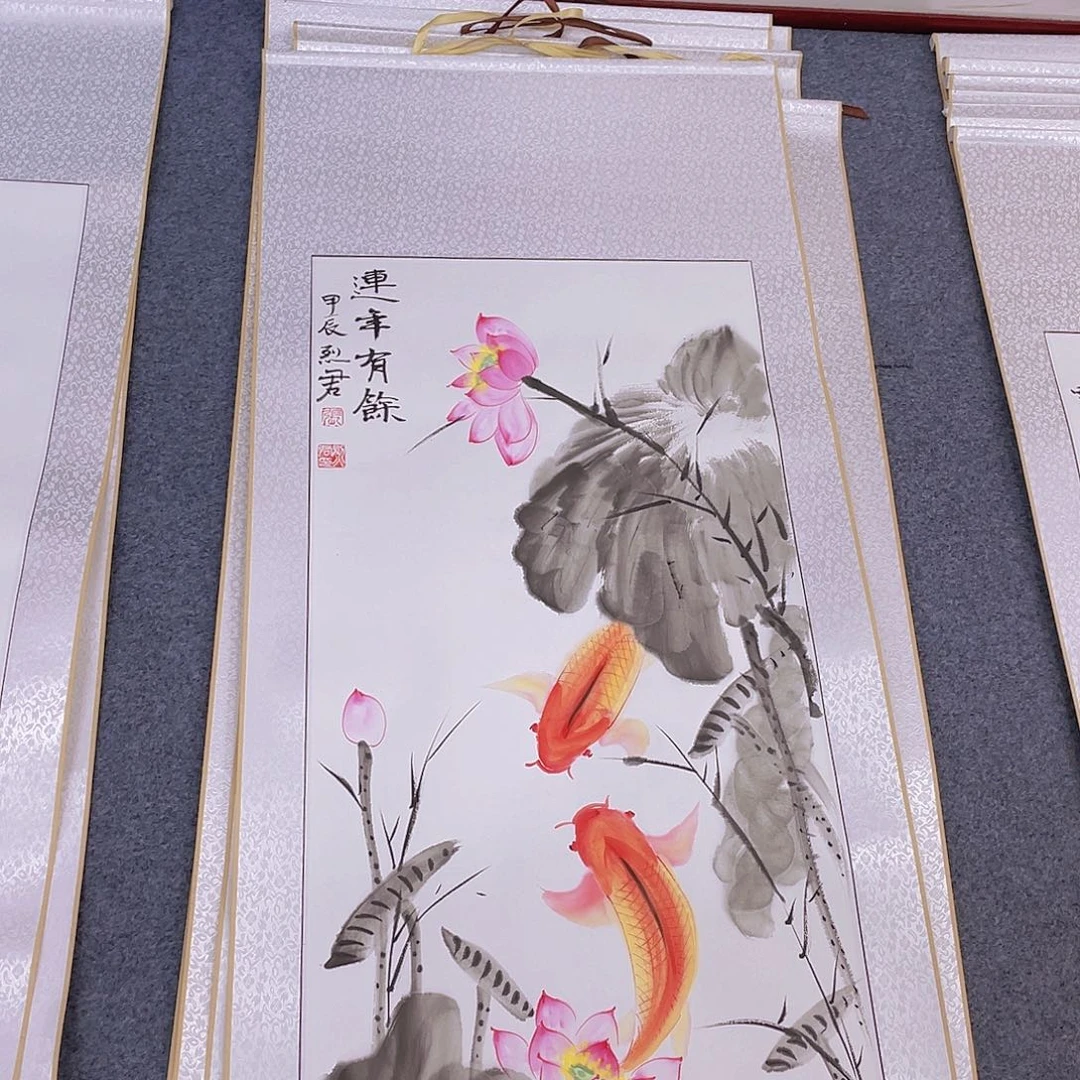 連年有餘
甲辰烈君